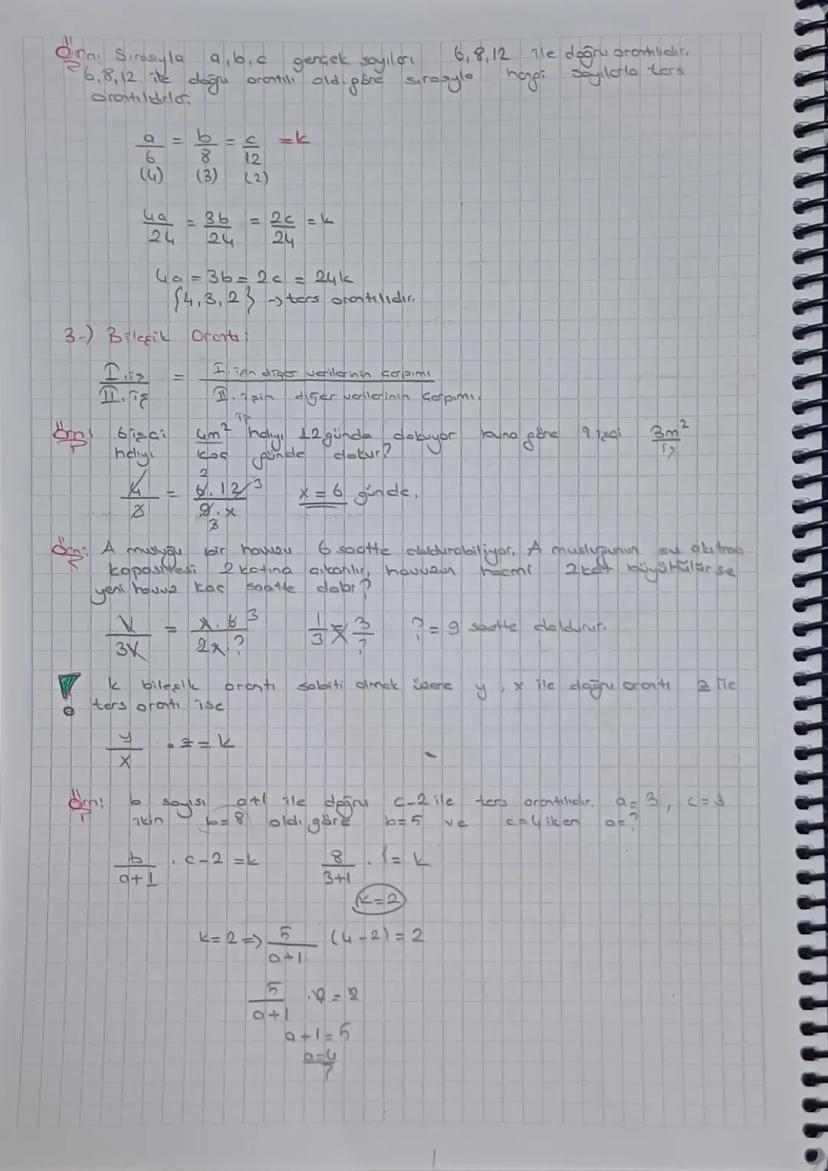 Örn: Sırasıyla a, b, c gerçek sayıları 6, 8, 12 ile doğru orantılıdır.
6, 8, 12 ile doğru orantılı old. göre sırasıyla hangi sayılarla ters
orantılıdırlar.
a/6 = b/8 = c/12 = k
(4) (3) (2)
4a/24 = 3b/24 = 2c/24 = k
4a = 3b = 2c = 24k
{4, 3, 2} → ters orantılıdır.
3-) Bileşik Orantı:
I. iş / II. iş = I. işin diğer verilerinin çarpımı / II. işin diğer verilerinin çarpımı.
Örn: 6 işçi 4m² halıyı 12 günde dokuyor buna göre 9 işçi 3m²
iş iş
halıyı kaç günde dokur?
4/3 = 6.12/9.x x = 6 günde.
2 3
3
Örn: A musluğu bir havuzu 6 saatte doldurabiliyor. A musluğunun su akıtma
kapasitesi 2 katına çıkarılır, havuzun hacmi 2 kat büyütülürse
yeni havuz kaç saatte dolar?
V/3V = x.6/2x.? 3 1/3 = 3/? ? = 9 saatte doldurur.
! k bileşik orantı sabiti olmak üzere y, x ile doğru orantı z ile
ters orantı ise
y/x . z = k
Örn: b sayısı a+1 ile doğru c-2 ile ters orantılıdır. a = 3, c = 3
için b = 8 old. göre b = 5 ve c = 4 iken a = ?
b/a+1 . c-2 = k 8/3+1 . 1 = k
k = 2
k = 2 => 5/a+1 (4-2) = 2
5/a+1 . 2 = 2
a+1 = 5
a = 4